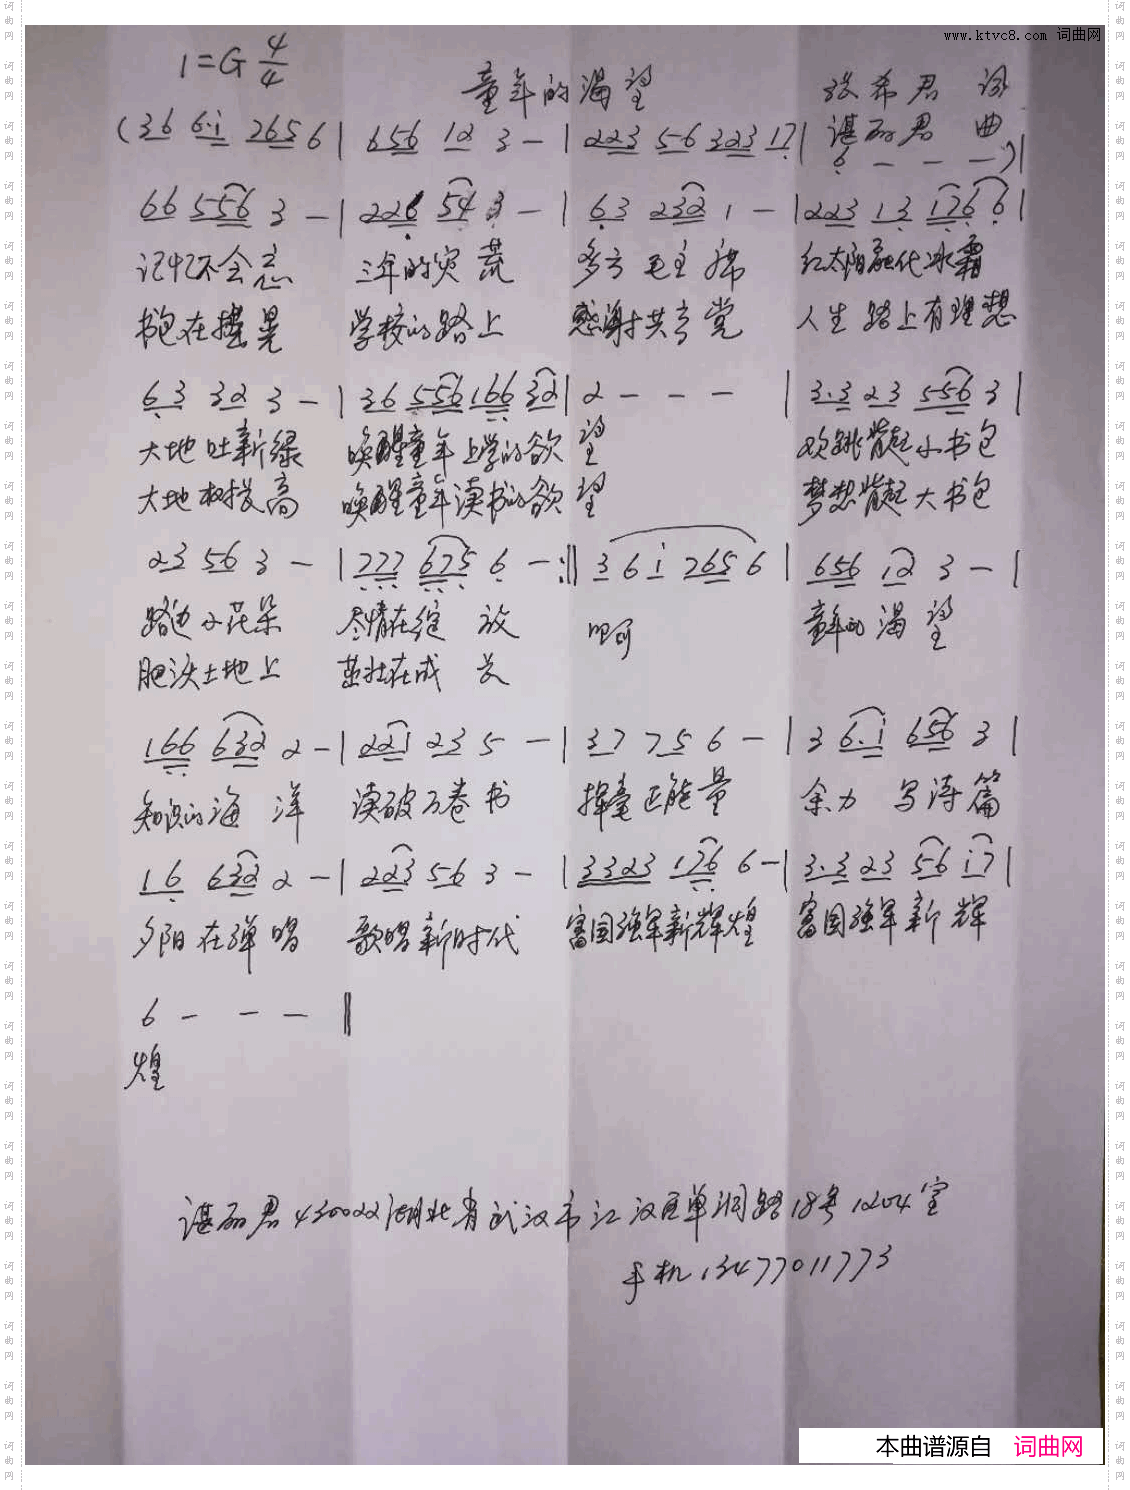 www.ktvc8.com 词曲网
1=G 4/4
童年的渴望
张希君 词
谌丽君 曲
(36 6·i 2656 | 656 12 3 - | 223 56 323 17 | 6 - - -)|
66 556 3 - | 226 54 3 - | 63 232 1 - | 223 13 176 6 |
记忆不会忘 三年的灾荒 多亏毛主席 红太阳融化冰霜
书包在摇晃 学校的路上 感谢共产党 人生路上有理想
63 32 3 - | 36 556 166 32 | 2 - - - | 3·3 23 556 3 |
大地吐新绿 唤醒童年上学的欲望 欢跳背起小书包
大地树拔高 唤醒童年读书的欲望 梦想背起大书包
23 56 3 - | 777 675 6 - :‖ 3 6 i 265 6 | 656 12 3 - |
路边小花朵 尽情在绽放 啊 童年的渴望
肥沃土地上 茁壮在成长
166 632 2 - | 221 23 5 - | 37 75 6 - | 3 6·i 656 3 |
知识的海洋 读破万卷书 挥毫正能量 余力写诗篇
16 632 2 - | 223 56 3 - | 3323 176 6 - | 3·3 23 56 i7 |
夕阳在弹唱 歌唱新时代 富国强军新辉煌 富国强军新辉
6 - - - ‖
煌
谌丽君430022湖北省武汉市江汉区单洞路18号1204室
手机13477011773
本曲谱源自 词曲网